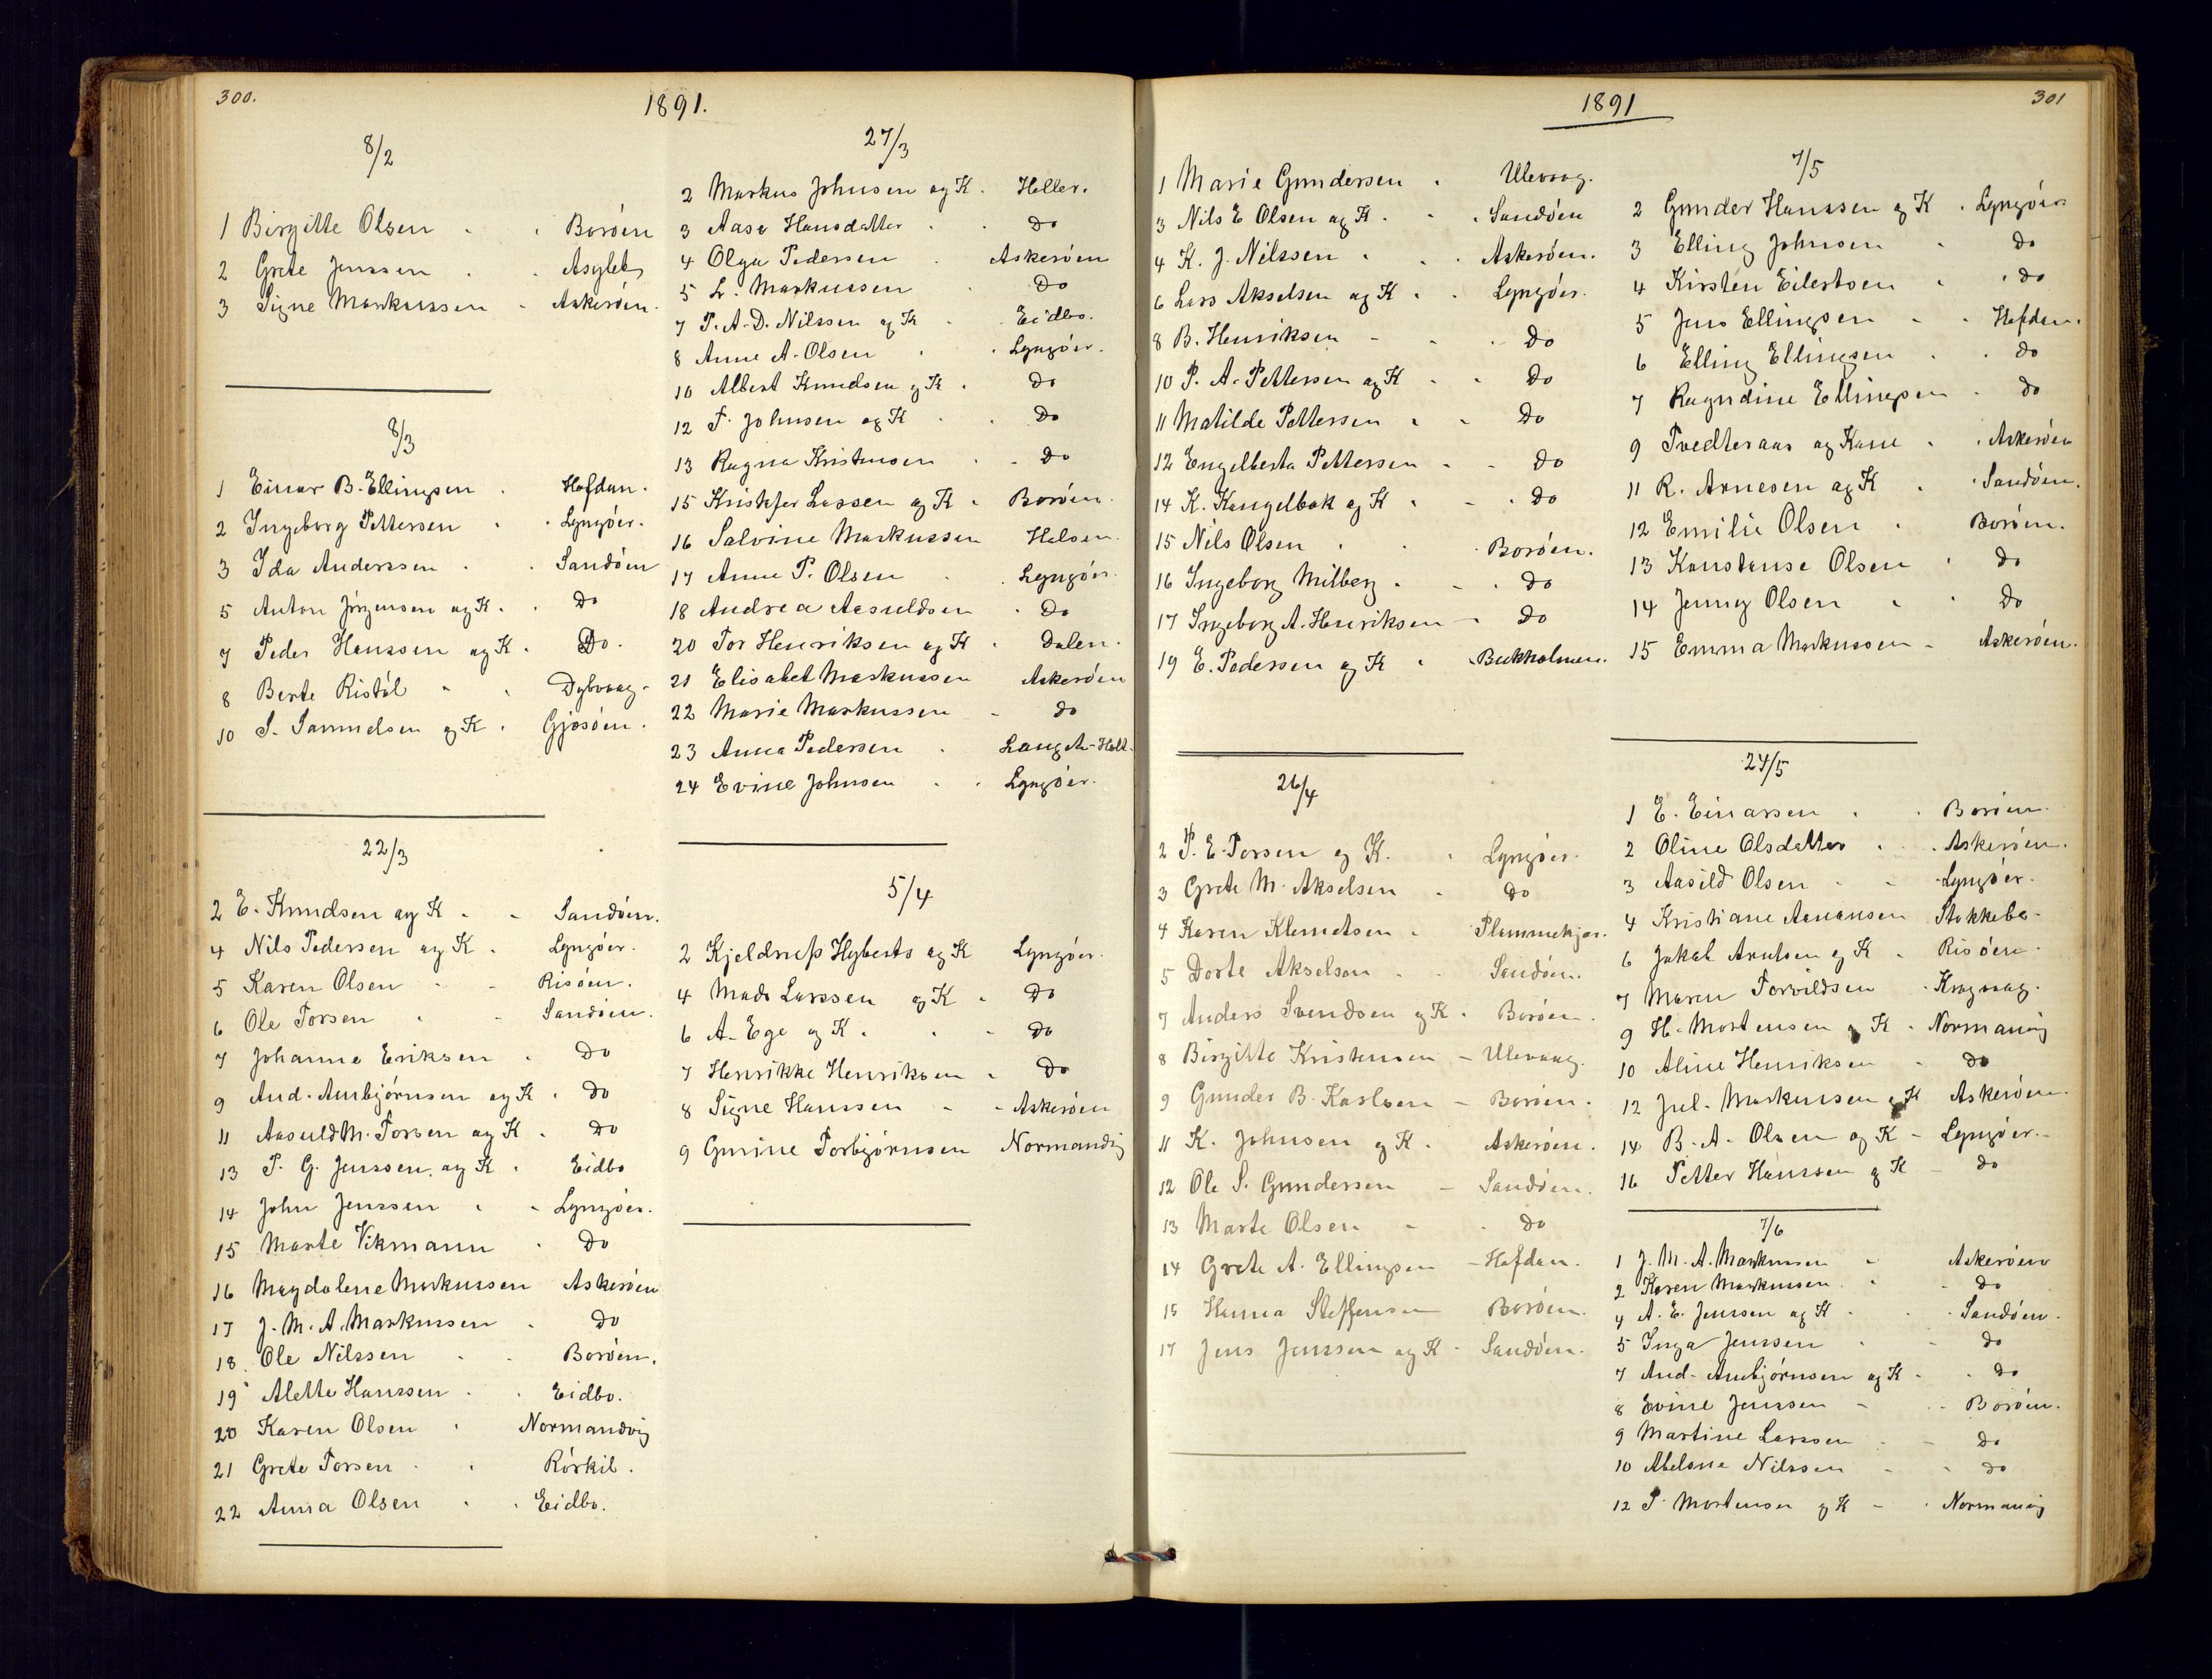 300.
1891.
8/2
1 Birgitte Olsen Boröen
2 Grete Jenssen Asylet
3 Signe Markussen Askeröen.
8/3
1 Einar B. Ellingsen Hafdan.
2 Ingeborg Pettersen Lyngöer.
3 Ida Anderssen Sandöen
5 Anton Jörgensen og K. Do
7 Peder Hanssen og K. Do.
8 Berte Ristöl Dybvaag.
10 S. Samuelsen og K. Gjesöen.
22/3
2 E. Knudsen og K Sandöen.
4 Nils Pedersen og K. Lyngöer.
5 Karen Olsen Risöen.
6 Ole Torsen Sandöen.
7 Johanne Eriksen Do
9 And. Ambjörnsen og K. Do
11 Aasuld M. Torsen og K. Do
13 P. G. Jenssen og K. Eidbo
14 John Jenssen Lyngöer.
15 Marte Vikmann Do
16 Magdalene Markussen Askeröen
17 J. M. A. Markussen Do
18. Ole Nilssen Boröen.
19 Alette Hanssen Eidbo.
20 Karen Olsen Normandvig
21 Grete Torsen Rörkil.
22 Anna Olsen Eidbo.
27/3
2 Markus Johnsen og K. Holler.
3 Aase Hansdatter Do
4 Olga Pedersen Askeröen
5 L. Markussen Do
7 P. A. D. Nilssen og K Eidbo.
8 Anne A. Olsen Lyngöer.
10 Albert Knudsen og K. Do
12 T. Johnsen og K Do
13 Ragna Kristensen Do
15 Kristfer Lassen og K. Boröen.
16 Salvine Markussen Holsen.
17 Anne P. Olsen Lyngöer.
18 Andrea Aasuldsen Do
20 Tor Henriksen og K. Dalen.
21 Elisabet Markussen Askeröen
22 Marie Markussen Do
23 Anna Pedersen Lang
24 Evine Johnsen Lyngöer.
5/4
2 Hyberts og K Lyngöer.
4 Mads Larssen og K. Do
6 A. Ege og K. Do
7 Henrikke Henriksen Do
8 Signe Hanssen Askeröen
9 Gurine Torbjörnsen Normandvig
1891
301
1 Marie Gundersen Ulevaag.
3 Nils E Olsen og K. Sandöen
4 K. J. Nilssen Askeröen.
6 Lars Akselsen og K. Lyngöer.
8 B. Henriksen Do
10 P. A. Pettersen og K Do
11 Matilde Pettersen Do
12 Engelberta Pettersen Do
14 K. Kangelbak og K Do
15 Nils Olsen Boröen.
16 Ingeborg Milberg. Do
17 Ingeborg A. Henriksen Do
19 E. Pedersen og K Bukholmen.
26/4
2 P. E. Torsen og K. Lyngöer.
3 Grete M. Akselsen Do
4 Karen Klemetsen
5 Dorte Akselsen Sandöen.
7 Anders Svendsen og K. Boröen.
8 Birgitte Kristensen Ulevaag.
9 Gunder B. Karlsen Boröen.
11 K. Johnsen og K. Askeröen.
12 Ole S. Gundersen Sandöen.
13 Marte Olsen Do
14 Grete A. Ellingsen Hafdan.
15 Hanna Steffensen Boröen.
17 Jens Jenssen og K. Sandöen.
7/5
2 Gunder Hanssen og K. Lyngöer
3 Elling Johnsen Do
4 Kirsten Eilertsen Do
5 Jens Ellingsen Hafdan.
6 Elling Ellingsen Do
7 Ragndine Ellingsen Do
9 Tvedteraas og Kone Askeröen
11 R. Arnesen og K Sandöen.
12 Emilie Olsen Boröen.
13 Konstanse Olsen Do
14 Jenny Olsen Do
15 Emma Markussen Askeröen.
24/5
1 E. Einarsen Boröen.
2 Oline Olsdatter Askeröen.
3 Aasild Olsen Lyngöer.
4 Kristiane Stokkebo.
6 Jakob Arntsen og K Risöen.
7 Maren Torvildsen Kragvaag.
9 H. Mortensen og K. Normanvig
10 Aline Henriksen Do
12 Jul. Markussen og K Askeröen.
14 B. A. Olsen og K Lyngöer.
16 Petter Hanssen og K Do
7/6
1 J. M. A. Markussen Askeröen
2 Karen Markussen. Do
4 A. E. Jenssen og K. Sandöen.
5 Inga Jenssen Do
7 And. Ambjörnsen og K. Do
8 Evine Jenssen Boröen.
9 Martine Larssen Do
10 Abelone Nilssen Do
12 P. Mortensen og K Normanvig